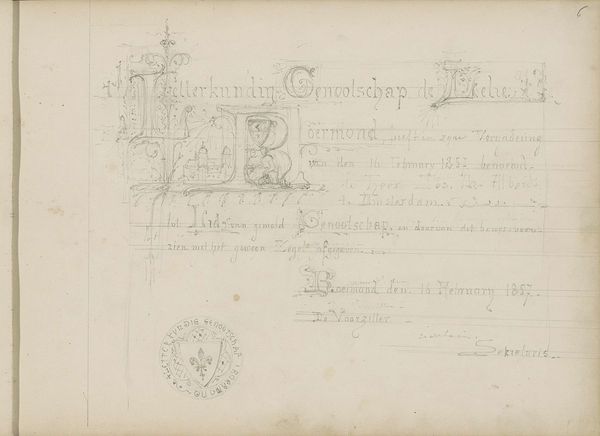 6
Letterkundig Genootschap de Lelie
Roermond, heeft in zyne Vergadering
van den 16 February 1857, benoemd
de Heer Alberd
te Amsterdam
tot Lid van gemeld Genootschap, en daarvan dit bewys
zien met het gewoon Zegel afgegeven.
Roermond den 16 February 1857.
De Voorzitter
Sekretaris.
LETTERKUNDIG GENOOTSCHAP ROERMOND